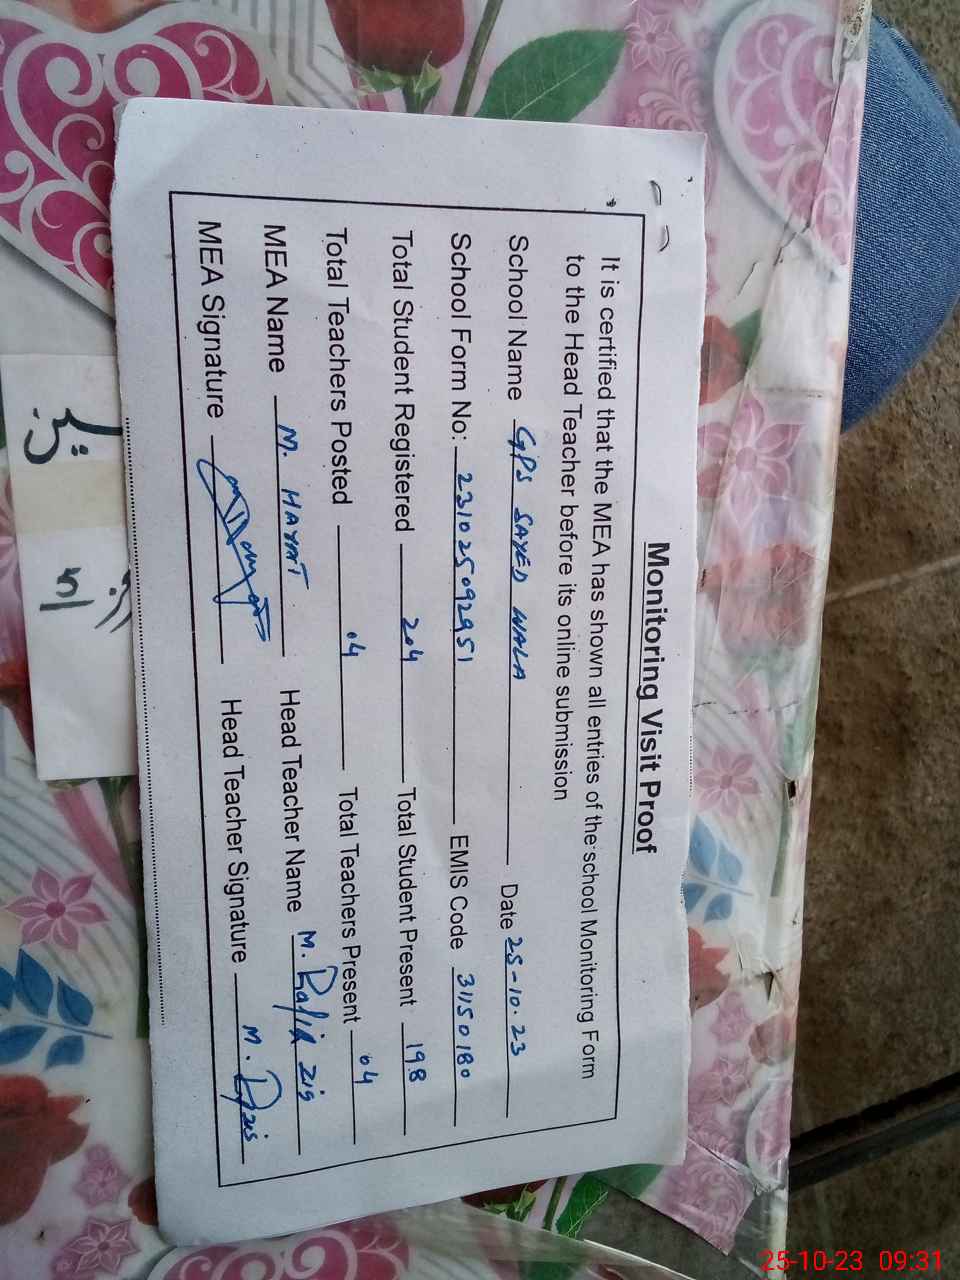 Monitoring Visit Proof
It is certified that the MEA has shown all entries of the school Monitoring Form
to the Head Teacher before its online submission
School Name GPS SAYED WALA Date 25-10-23
School Form No: 231025092951 EMIS Code 31150180
Total Student Registered 204 Total Student Present 198
Total Teachers Posted 04 Total Teachers Present 04
MEA Name M. HAYAT Head Teacher Name M. Rafiq
MEA Signature Head Teacher Signature M.
5
25-10-23 09:31